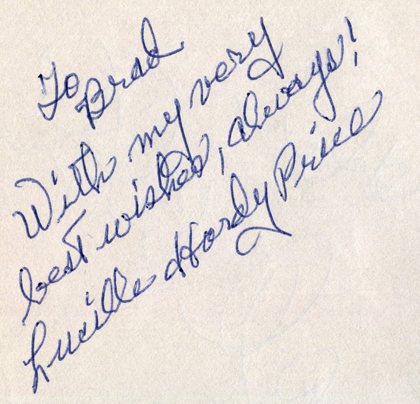 To Brad
With my very
best wishes, always!
Lucille Hardy Price